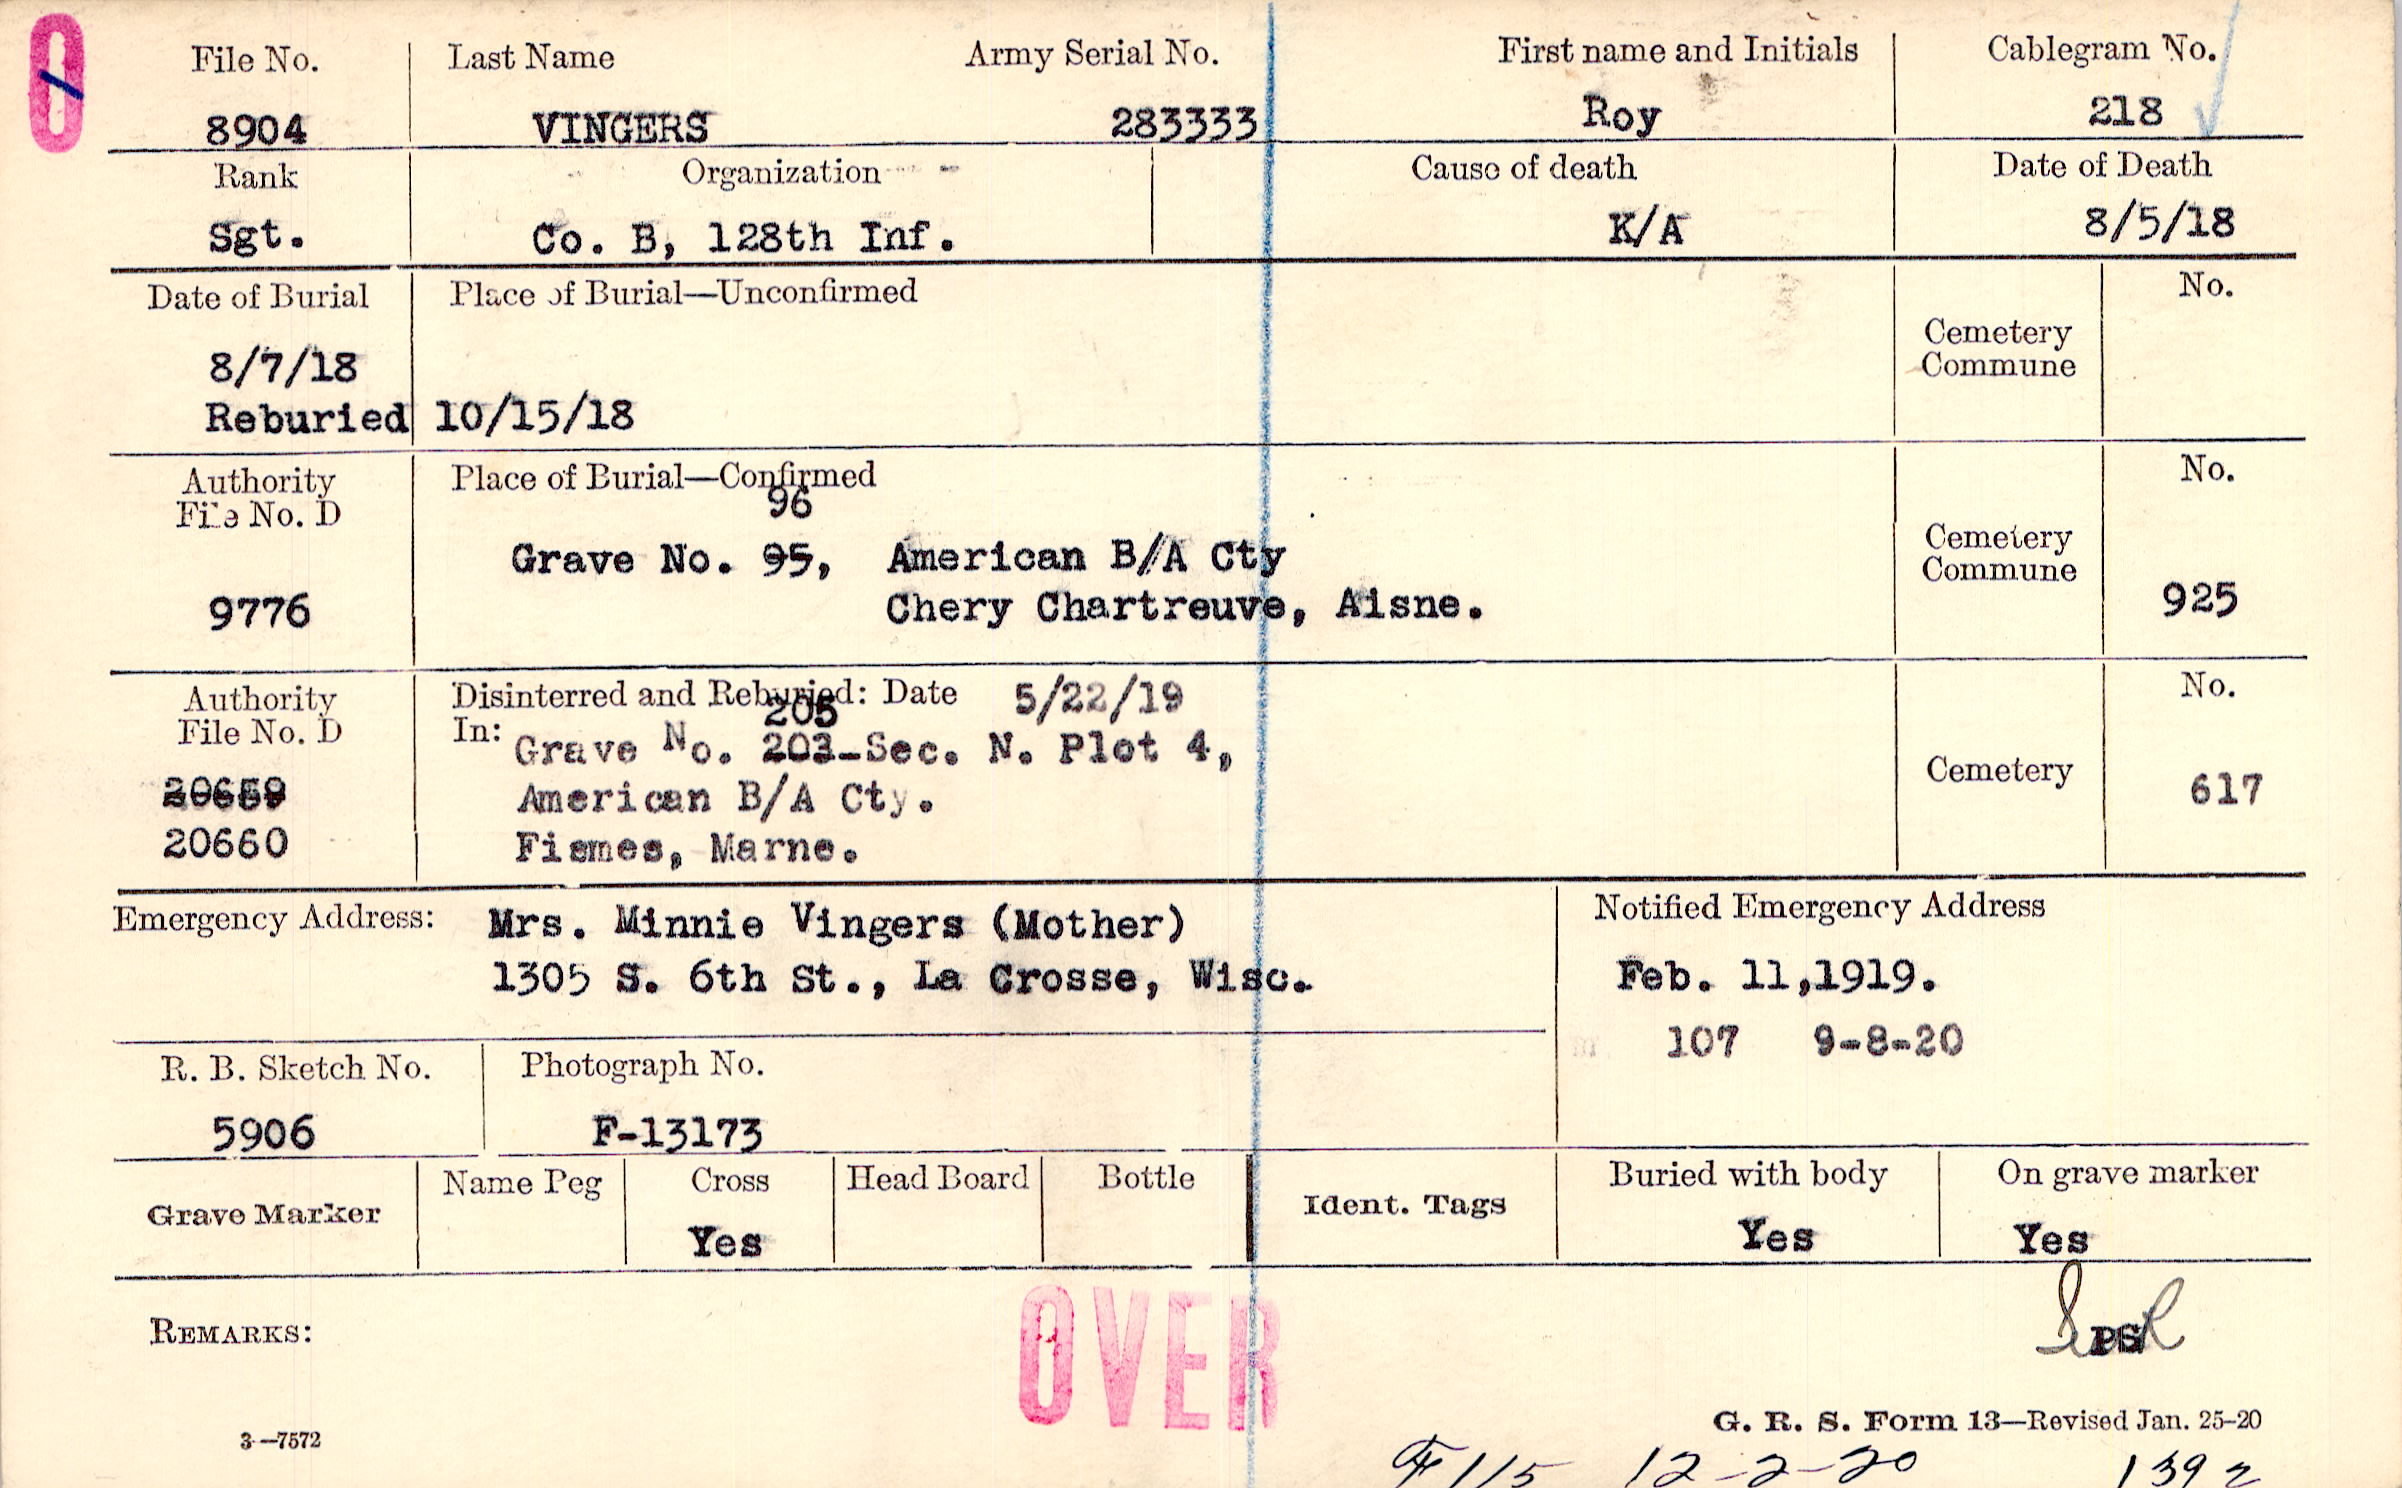 0
File No. Last Name Army Serial No. First name and Initials Cablegram No.
8904 VINGERS 283333 Roy 218
Rank Organization Cause of death Date of Death
Sgt. Co. B, 128th Inf. K/A 8/5/18
Date of Burial Place of Burial—Unconfirmed No.
Cemetery
Commune
8/7/18
Reburied 10/15/18
Authority Place of Burial—Confirmed No.
File No. D 96
Grave No. 95, American B/A Cty Cemetery
Commune
9776 Chery Chartreuve, Aisne. 925
Authority Disinterred and Reburied: Date 5/22/19 No.
File No. D In: 205
Grave No. 203-Sec. N. Plot 4,
20659 American B/A Cty. Cemetery 617
20660 Fismes, Marne.
Emergency Address: Mrs. Minnie Vingers (Mother) Notified Emergency Address
1305 S. 6th St., La Crosse, Wisc. Feb. 11,1919.
107 9-8-20
R. B. Sketch No. Photograph No.
5906 F-13173
Grave Marker Name Peg Cross Head Board Bottle Ident. Tags Buried with body On grave marker
Yes Yes Yes
REMARKS: PS
OVER
G. R. S. Form 13—Revised Jan. 25-20
3—7572
115 12-2-20 1392